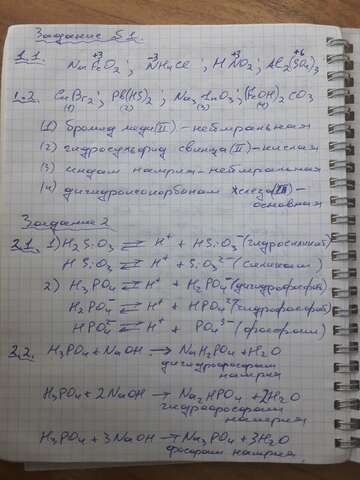 Задание §1.
1.1. NaFeO₂; NH₄Cl; HNO₂; Al₂(SO₄)₃
+3 -3 +3 +6
1.2. CuBr₂; Pb(HS)₂; Na₃InO₃; (FeOH)₂CO₃
(1) (2) (3) (4)
(1) бромид меди (II) – нейтральная
(2) гидросульфид свинца (II) – кислая
(3) индат натрия – нейтральная
(4) железа – основная
Задание 2
2.1. 1) H₂SiO₃ ⇌ H⁺ + HSiO₃⁻ (гидросиликат)
HSiO₃⁻ ⇌ H⁺ + SiO₃²⁻ (силикат)
2) H₃PO₄ ⇌ H⁺ + H₂PO₄⁻ (дигидрофосфат)
H₂PO₄⁻ ⇌ H⁺ + HPO₄²⁻ (гидрофосфат)
HPO₄²⁻ ⇌ H⁺ + PO₄³⁻ (фосфат)
2.2. H₃PO₄ + NaOH → NaH₂PO₄ + H₂O
дигидрофосфат натрия
H₃PO₄ + 2NaOH → Na₂HPO₄ + 2H₂O
гидрофосфат натрия
H₃PO₄ + 3NaOH → Na₃PO₄ + 3H₂O
фосфат натрия